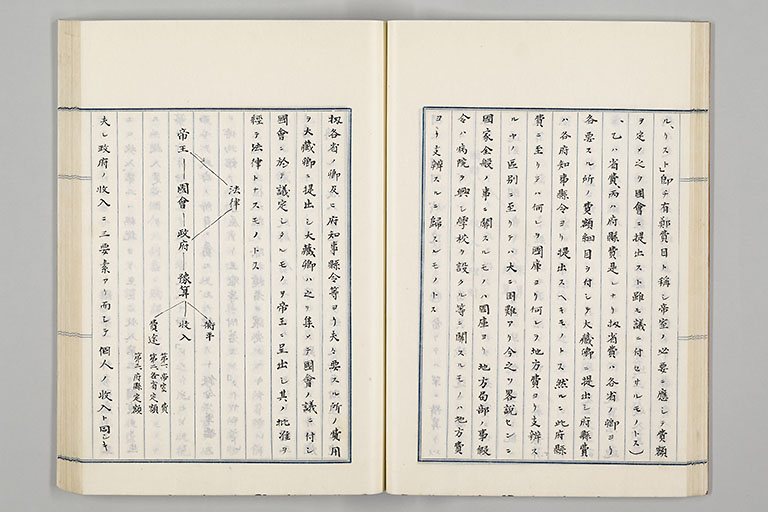 ル、リスト」即チ有鄰費目ト称シ帝室ノ必要ニ應シテ費額
ヲ定メ之ヲ國會ニ提出スト雖ル議ニ付セサルモノトス)
乙ハ省費、丙ハ府縣費是レナリ扨省費ハ各省ノ卿ヨリ
各要スル所ノ費額細目ヲ付シテ大藏卿ニ提出シ府縣費
ハ各府知事縣令ヨリ提出スヘキモノトス然ルニ此府縣
費ニ至リテハ何レヲ國庫ヨリ何レヲ地方費ヨリ支辨ス
ルヤノ區別ニ至リテハ大ニ困難アリ今之ヲ畧説センニ
國家全般ノ事ニ關スルモノハ國庫ヨリ地方局部ノ事假
令ハ病院ヲ興シ學校ヲ設クル等ニ關スルモノハ地方費
ヨリ支辨スルニ歸スルモノトス
扨各省ノ卿及ニ府知事縣令等ヨリ夫々要スル所ノ費用
ヲ大藏卿ニ提出シ大藏卿ハ之ヲ集メテ國會ノ議ニ付シ
國會ニ於テ議定シタルモノヲ帝王ニ呈出シ其ノ批准ヲ
経テ法律トナスモノトス
法律
帝王―國會―政府―豫算―收入
衡平
費途
第一、帝室費
第二、各省定額
第三、府縣定額
夫レ政府ノ收入ニ三要素アリ而シテ個人ノ收入ト同シキ